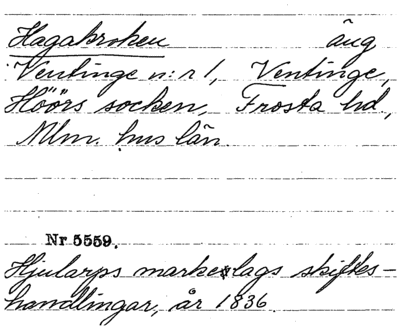 Hagakroken äng
Ventinge n:r 1, Ventinge,
Höörs socken, Frosta hd,
Mlm. hus län.
Nr 5559.
Hjularps markelags skiftes-
handlingar, år 1836.